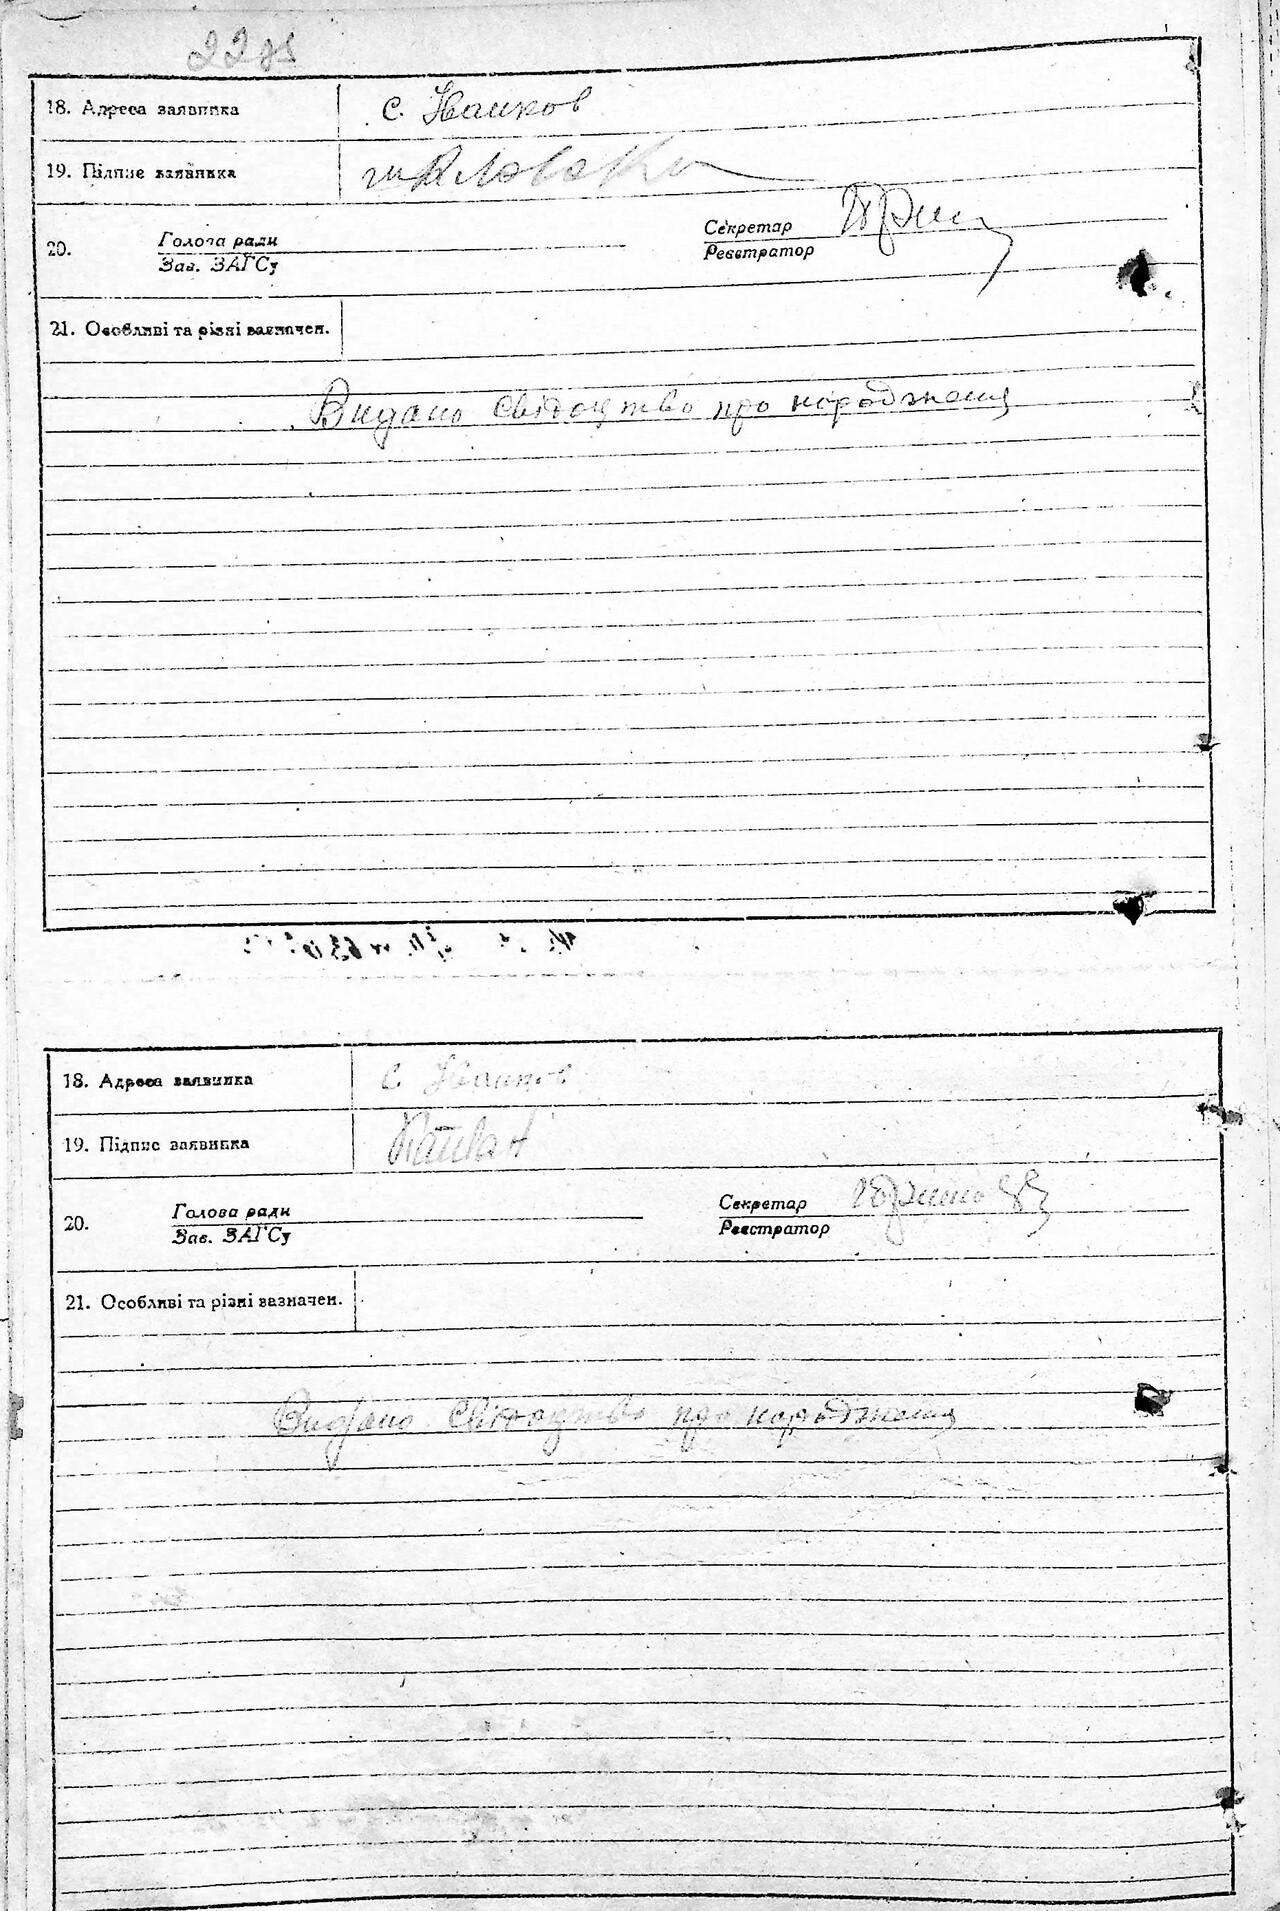 18. Адреса заявника с. Іванков
19. Підпис заявника
20. Голова ради Секретар
Зав. ЗАГСу Реєстратор
21. Особливі та різні зазначен.
Видано свідоцтво про народження
18. Адреса заявника с. Іванков
19. Підпис заявника
20. Голова ради Секретар
Зав. ЗАГСу Реєстратор
21. Особливі та різні зазначен.
Видано свідоцтво про народження